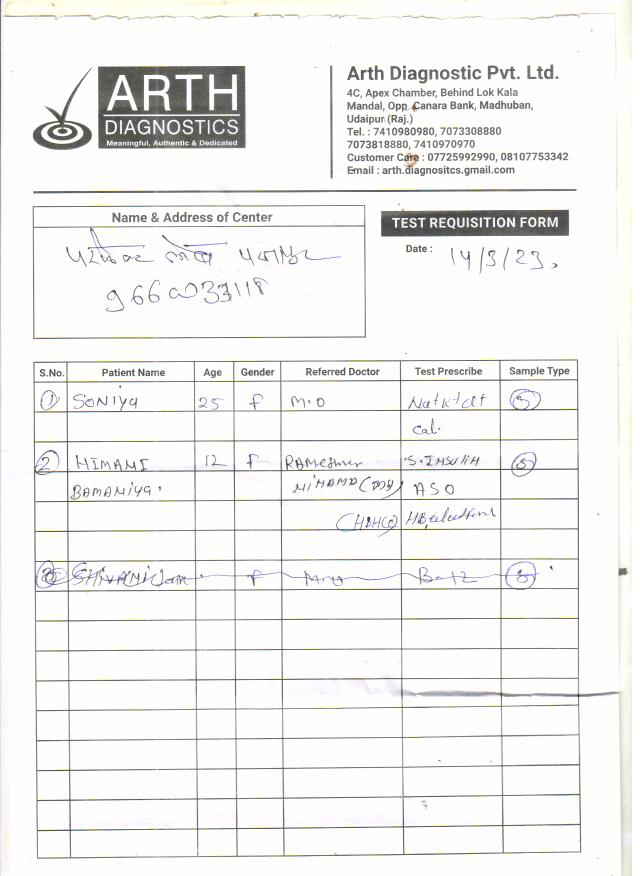 ARTH
DIAGNOSTICS
Meaningful, Authentic & Dedicated
Arth Diagnostic Pvt. Ltd.
4C, Apex Chamber, Behind Lok Kala
Mandal, Opp. Canara Bank, Madhuban,
Udaipur (Raj.)
Tel. : 7410980980, 7073308880
7073818880, 7410970970
Customer Care : 07725992990, 08107753342
Email : arth.diagnositcs.gmail.com
Name & Address of Center
TEST REQUISITION FORM
Date :
S.No. Patient Name Age Gender Referred Doctor Test Prescribe Sample Type
1 SONIYA 25 f M.O Na+K+Cl+ S
Cal.
2 HIMANI 12 f RAMeshwer S. INSULIN S
BAMANIYA. ASO
f B12